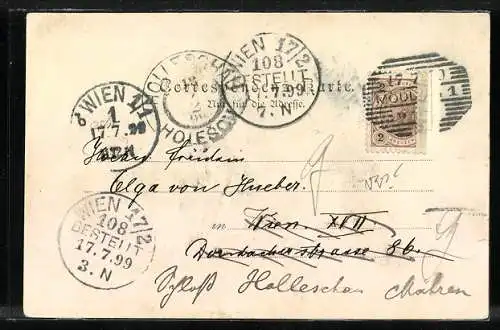 WIEN 17/2
108
BESTELLT
17.7.99
7.N
HOLLESCHAU
HOLEŠOV
Correspondenz-Karte.
Nur für die Adresse.
WIEN 1/1
1
17.7.99
2
Olga von Hueber
in Wien XVII
Dornbacherstrasse 86.
WIEN 17/2
108
BESTELLT
17.7.99
3.N
Schloß Holleschau Mähren